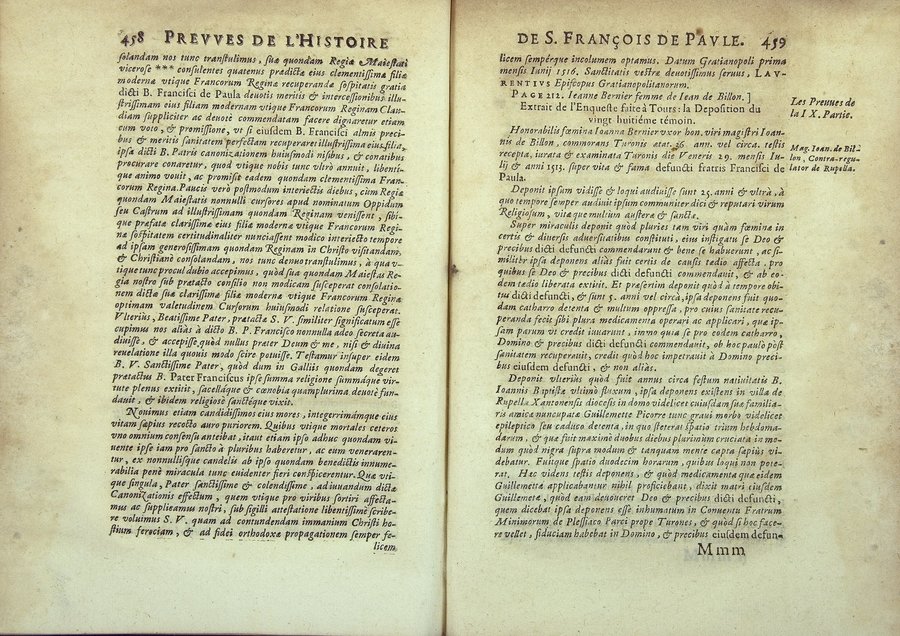 458 PREVVES DE L'HISTOIRE
solandam nos tunc transtulimus, suæ quondam Regiæ Maiestati
vicerose *** consulentes quatenus prædictæ eius clementissimæ filiæ
modernæ vtique Francorum Regina recuperandæ sospitatis gratia
dicti B. Francisci de Paula deuotis meritis & intercessionibus illu-
strissimam eius filiam modernam vtique Francorum Reginam Clau-
diam suppliciter ac deuotè commendatam facere dignaretur etiam
cum voto, & promissione, vt si eiusdem B. Francisci almis preci-
bus & meritis sanitatem perfectam recuperaret illustrissima eius filia,
ipsa dicti B. Patris canonizationem huiusmodi nisibus, & conatibus
procurare conaretur, quod vtique nobis tunc vltrò annuit, libenti-
que animo vouit, ac promisit eadem quondam clementissima Fran-
corum Regina. Paucis verò postmodum interiectis diebus, cùm Regiæ
quondam Maiestatis nonnulli cursores apud nominatum Oppidum
seu Castrum ad illustrissimam quondam Reginam venissent, sibi-
que præfatæ clarissimæ eius filiæ modernæ vtique Francorum Regi-
næ sospitatem certitudinaliter nunciassent modico interiecto tempore
ad ipsam generosissimam quondam Reginam in Christo visitandam,
& Christianè consolandam, nos tunc denuo transtulimus, à qua v-
tique tunc procul dubio accepimus, quòd sua quondam Maiestas Re-
gia nostro sub prætacto consilio non modicam susceperat consolatio-
nem dictæ suæ clarissimæ filiæ modernæ vtique Francorum Reginæ
optimam valetudinem. Cursorum huiusmodi relatione susceperat.
Vlterius, Beatissime Pater, prætactæ S. V. similiter significatum esse
cupimus nos aliàs à dicto B. P. Francisco nonnulla adeo secreta au-
diuisse, & accepisse quòd nullus præter Deum & me, nisi & diuina
reuelatione illa quouis modo scire potuisse. Testamur insuper eidem
B. V. Sanctissime Pater, quòd dum in Galliis quondam degeret
prætactus B. Pater Franciscus ipse summa religione summáque vir-
tute plenus extitit, sacelláque & cœnobia quamplurima deuotè fun-
dauit, & ibidem religiosè sanctéque vixit.
Nouimus etiam candidissimos eius mores, integerrimámque eius
vitam sæpius recocto auro puriorem. Quibus vtique mortales ceteros
vno omnium consensu anteibat, itaut etiam ipso adhuc quondam vi-
uente ipse iam pro sancto à pluribus haberetur, ac eum veneraren-
tur, ex nonnullisque candelis ab ipso quondam benedictis innume-
rabilia penè miracula tunc euidenter fieri conspicerentur. Quæ vti-
que singula, Pater sanctissime & colendissime, adiuuandum dictæ
Canonizationis effectum, quem vtique pro viribus sortiri affecta-
mus ac supplicamus nostri, sub sigilli attestatione libentissimè scribe-
re voluimus S. V. quam ad contundendam immanium Christi ho-
stium ferociam, & ad fidei orthodoxæ propagationem semper fe-
licem
DE S. FRANÇOIS DE PAVLE. 459
licem sempérque incolumem optamus. Datum Gratianopoli prima
mensis Iunij 1516. Sanctitatis vestræ deuotissimus seruus, LAV-
RENTIVS Episcopus Gratianopolitanorum.
PAGE 212. Ieanne Bernier femme de Iean de Billon.]
Extrait de l'Enqueste faite à Tours: la Deposition du
vingt huitiéme témoin.
Les Preuues de
la IX. Partie.
Honorabilis fœmina Ioanna Bernier vxor hon. viri magistri Ioan-
nis de Billon, commorans Turonis ætat. 36. ann. vel circa, testis
recepta, iurata & examinata Turonis die Veneris 29. mensis Iu-
lij & anni 1513. super vita & fama defuncti fratris Francisci de
Paula.
Mag. Ioan. de Bil-
lon, Contra-regu-
lator de Rupella.
Deponit ipsum vidisse & loqui audiuisse sunt 25. anni & vltrà, à
quo tempore semper audiuit ipsum communiter dici & reputari virum
Religiosum, vitæque multum austeræ & sanctæ.
Super miraculis deponit quòd pluries tam viri quàm fœminæ in
certis & diuersis aduersitatibus constituti, eius instigatu se Deo &
precibus dicti defuncti commendarunt & bene se habuerunt, ac si-
militer ipsa deponens aliàs fuit certis de causis tædio affecta, pro
quibus se Deo & precibus dicti defuncti commendauit, & ab eo-
dem tædio liberata extitit. Et præsertim deponit quòd à tempore obi-
tus dicti defuncti, & sunt 5. anni vel circa, ipsa deponens fuit quo-
dam catharro detenta & multum oppressa, pro cuius sanitate recu-
peranda fecit sibi plura medicamenta operari ac applicari, quæ ip-
sam parum vt credit iuuarunt, in quo quia se pro eodem catharro,
Domino & precibus dicti defuncti commendauit, ob hoc paulò pòst
sanitatem recuperauit, credit quòd hoc impetrauit à Domino preci-
bus eiusdem defuncti, & non aliàs.
Deponit vlteriùs quòd fuit annus circa festum natiuitatis B.
Ioannis Baptistæ vltimò fluxum, ipsa deponens existens in villa de
Rupella Xantonensis diocesis in domo videlicet cuiusdam suæ familia-
ris amicæ nuncupatæ Guillemette Picorre tunc graui morbo videlicet
epileptico seu caduco detenta, in quo steterat spatio trium hebdoma-
darum, & quæ fuit maximè duobus diebus plurimùm cruciata in mo-
dum quòd nigra supra modum & tanquam mente capta sæpius vi-
debatur. Fuitque spatio duodecim horarum, quibus loqui non pote-
rat. Hæc videns testis deponens, & quòd medicamenta quæ eidem
Guillemetæ applicabantur nihil proficiebant, dixit matri eiusdem
Guillemetæ, quòd eam deuoueret Deo & precibus dicti defuncti,
quem dicebat ipsa deponens esse inhumatum in Conuentu Fratrum
Minimorum de Plessiaco Parci prope Turones, & quòd si hoc face-
re vellet, fiduciam habebat in Domino, & precibus eiusdem defun-
Mmm